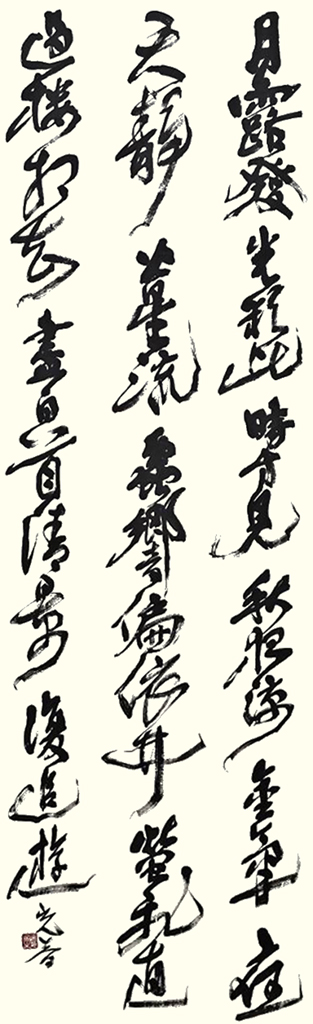 月露發光彩此時方見秋夜涼金氣應
天靜火星流蟲響偏依井螢飛直
過樓相知盡白首清景復追遊